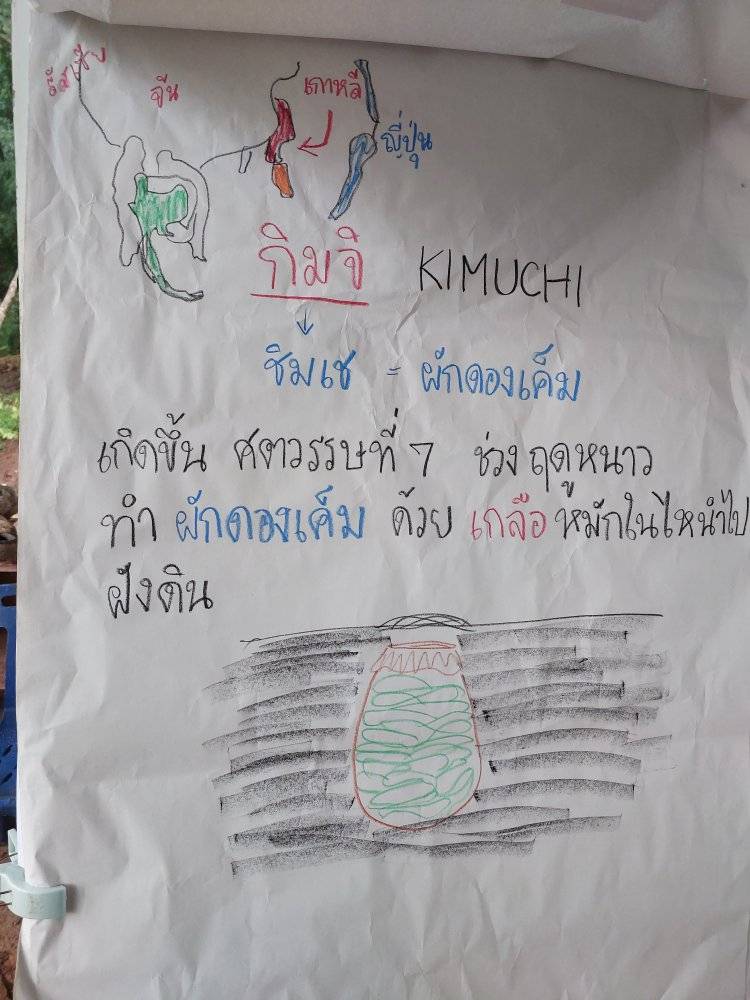 รัสเซีย
จีน
เกาหลี
ญี่ปุ่น
กิมจิ KIMUCHI
ชิมเช = ผักดองเค็ม
เกิดขึ้น ศตวรรษที่ 7 ช่วงฤดูหนาว
ทำ ผักดองเค็ม ด้วย เกลือ หมักในไหนำไป
ฝังดิน